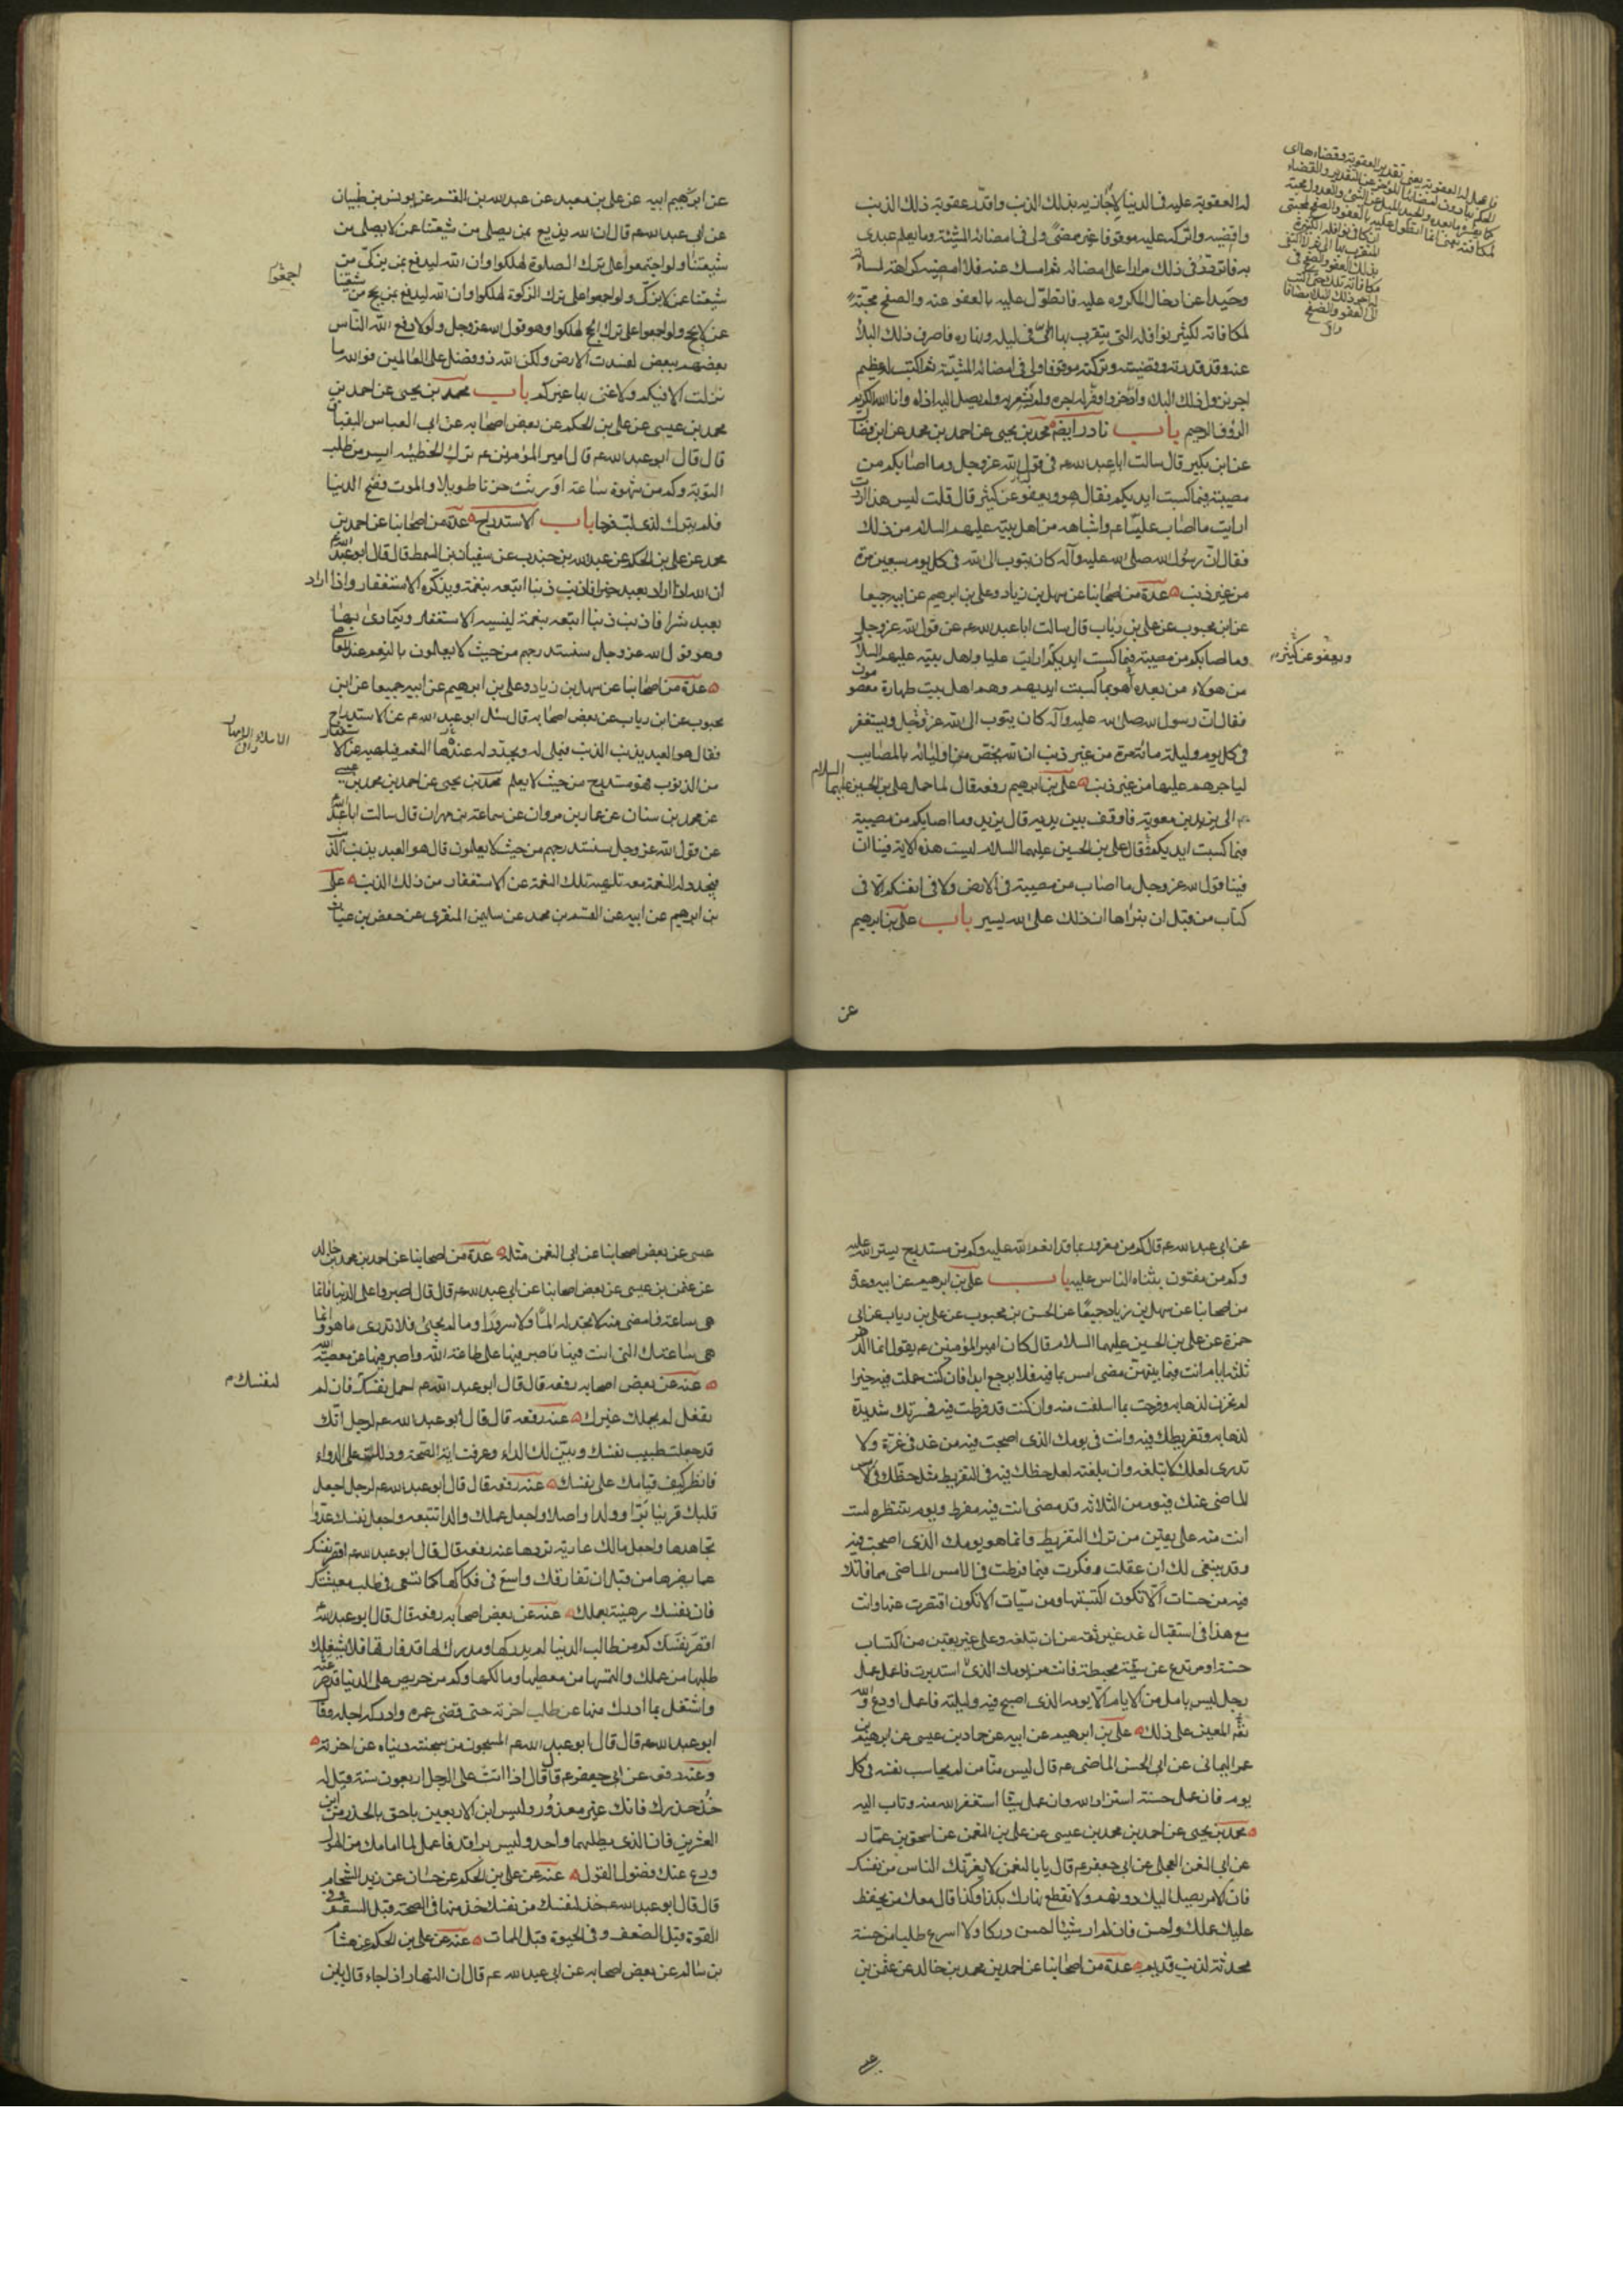 له العقوبة عليه فى الدنيا لاجازيه بذلك الذنب واقدر عقوبة ذلك الذنب
واقضيه واتركه عليه موقوفا غير ممضى ولى فى امضائه المشيئة وما يعلم عبدى
به فاتردد فى ذلك مرارا على امضائه ثم امسك عنه فلا امضيه كراهة لمسائته
وحيدا عن ادخال المكروه عليه فاتطول عليه بالعفو عنه والصفح محبة
لمكافاته لكثير نوافله التى يتقرب بها الى فى ليله ونهاره فاصرف ذلك البلاء
عنه وقد قدرته وقضيته وتركته موقوفا ولى فى امضائه المشية ثم اكتب له عظيم
اجر نزول ذلك البلاء وادخره واوفر له اجره ولم يشعر به ولم يصل اليه اذاه وانا الله الكريم
الرؤف الرحيم باب نادر ايضا محمد بن يحيى عن احمد بن محمد عن ابن فضال
عن ابن بكير قال سالت ابا عبد الله ع فى قول الله عز وجل وما اصابكم من
مصيبة فبما كسبت ايديكم فقال هو ويعفو عن كثير قال قلت ليس هذا اردت
ارايت ما اصاب عليا ع واشباهه من اهل بيته عليهم السلام من ذلك
فقال ان رسول الله صلى الله عليه وآله كان يتوب الى الله فى كل يوم سبعين مرة
من غير ذنب عدة من اصحابنا عن سهل بن زياد وعلى بن ابرهيم عن ابيه جميعا
عن ابن محبوب عن على بن رياب قال سالت ابا عبد الله ع عن قول الله عز وجل
وما اصابكم من مصيبة فبما كسبت ايديكم ارايت عليا واهل بيته عليهم السلام
من هولاء من بعده اهو بما كسبت ايديهم وهم اهل بيت طهارة معصومون
فقال ان رسول الله صلى الله عليه وآله كان يتوب الى الله عز وجل ويستغفر
فى كل يوم وليلة مائة مرة من غير ذنب ان الله يخص اوليائه بالمصايب
لياجرهم عليها من غير ذنب على بن ابرهيم رفعه قال لما حمل على بن الحسين عليهما السلام
الى يزيد بن معوية فاوقف بين يديه قال يزيد وما اصابكم من مصيبة
فبما كسبت ايديكم فقال على بن الحسين عليهما السلام ليست هذه الاية فينا ان
فينا قول الله عز وجل ما اصاب من مصيبة فى الارض ولا فى انفسكم الا فى
كتاب من قبل ان نبراها ان ذلك على الله يسير باب على بن ابرهيم
عن
ويعفو عن كثير
عن ابرهيم ابيه عن على بن معبد عن عبد الله بن القسم عن يونس بن ظبيان
عن ابى عبد الله ع قال ان الله يدفع بمن يصلى من شيعتنا عن لا يصلى من
شيعتنا ولو اجتمعوا على ترك الصلوة لهلكوا وان الله ليدفع بمن يزكى من
شيعتنا عن لا يزكى ولو اجمعوا على ترك الزكوة لهلكوا وان الله ليدفع بمن يحج من شيعتنا
عن لا يحج ولو اجمعوا على ترك الحج لهلكوا وهو قول الله عز وجل ولولا دفع الله الناس
بعضهم ببعض لفسدت الارض ولكن الله ذو فضل على العالمين فوالله ما
نزلت الا فيكم ولا عنى بها غيركم باب محمد بن يحيى عن احمد بن
محمد بن عيسى عن على بن الحكم عن بعض اصحابه عن ابى العباس البقباق
قال قال ابو عبد الله ع قال امير المؤمنين ع ترك الخطيئه ايسر من طلب
التوبة وكم من شهوة ساعة اورثت حزنا طويلا والموت فضح الدنيا
فلم يترك لذى لب فرحا باب الاستدراج عدة من اصحابنا عن احمد بن
محمد عن على بن الحكم عن عبد الله بن جندب عن سفيان بن السمط قال قال ابو عبد الله ع
ان الله اذا اراد بعبد خيرا فاذنب ذنبا اتبعه بنقمة ويذكره الاستغفار واذا اراد
بعبد شرا فاذنب ذنبا اتبعه بنعمة لينسيه الاستغفار ويتمادى بها
وهو قول الله عز وجل سنستدرجهم من حيث لا يعلمون بالنعم عند المعاصى
عدة من اصحابنا عن سهل بن زياد وعلى بن ابرهيم عن ابيه جميعا عن ابن
محبوب عن ابن رياب عن بعض اصحابه قال سئل ابو عبد الله ع عن الاستدراج
فقال هو العبد يذنب الذنب فيملى له ويجدد له عندها النعم فيلهيه عن الاستغفار
من الذنوب فهو مستدرج من حيث لا يعلم محمد بن يحيى عن احمد بن محمد بن عيسى
عن محمد بن سنان عن عمار بن مروان عن سماعة بن مهران قال سالت ابا عبد الله
عن قول الله عز وجل سنستدرجهم من حيث لا يعلمون قال هو العبد يذنب الذنب
فيجدد له النعمة معه تلهيه تلك النعمة عن الاستغفار من ذلك الذنب على
بن ابرهيم عن ابيه عن القسم بن محمد عن سليمن المنقرى عن حفص بن غياث
عن ابى عبد الله ع قال كم من مغرور بما قد انعم الله عليه وكم من مستدرج بستر الله عليه
وكم من مفتون بثناء الناس عليه باب على بن ابرهيم عن ابيه وعدة
من اصحابنا عن سهل بن زياد جميعا عن الحسن بن محبوب عن على بن رياب عن ابى
حمزة عن على بن الحسين عليهما السلام قال كان امير المؤمنين ع يقول انما الدهر
ثلثة ايام انت فيما بينهن مضى امس بما فيه فلا يرجع ابدا فان كنت عملت فيه خيرا
لم تحزن لذهابه وفرحت بما اسلفت منه وان كنت قد فرطت فيه فحسرتك شديدة
لذهابه وتفريطك فيه وانت فى يومك الذى اصبحت فيه من غد فى غرة ولا
تدرى لعلك لا تبلغه وان بلغته لعل حظك فيه فى التفريط مثل حظك فى الامس
الماضى عنك فيوم من الثلاثة قد مضى انت فيه مفرط ويوم تنتظره لست
انت منه على يقين من ترك التفريط وانما هو يومك الذى اصبحت فيه
وقد ينبغى لك ان عقلت وفكرت فيما فرطت فى الامس الماضى مما فاتك
فيه من حسنات الا تكون اكتسبتها ومن سيات الا تكون اقتصرت عنها وانت
مع هذا فى استقبال غد غير ثقة من ان تبلغه وعلى غير يقين من اكتساب
حسنة او مرتدع عن سيئة محبطة فانت من يومك الذى استدبرت فاعمل عمل
رجل ليس يامل من الايام الا يومه الذى اصبح فيه وليلته فاعمل او دع والله
المعين على ذلك على بن ابرهيم عن ابيه عن حماد بن عيسى عن ابرهيم بن
عمر اليمانى عن ابى الحسن الماضى ع قال ليس منا من لم يحاسب نفسه فى كل
يوم فان عمل حسنة استزاد الله وان عمل سيئا استغفر الله منه وتاب اليه
محمد بن يحيى عن احمد بن محمد بن عيسى عن على بن النعمن عن اسحق بن عمار
عن ابى النعمن العجلى عن ابى جعفر ع قال يا با النعمن لا يغرنك الناس من نفسك
فان الامر يصل اليك دونهم ولا تقطع نهارك بكذا وكذا فان معك من يحفظ
عليك عملك واحسن فانى لم ار شيئا احسن دركا ولا اسرع طلبا من حسنة
محدثة لذنب قديم عدة من اصحابنا عن احمد بن محمد بن خالد عن عثمن بن
عيسى
عيسى عن بعض اصحابنا عن ابى النعمن مثله عدة من اصحابنا عن احمد بن محمد بن خالد
عن عثمن بن عيسى عن بعض اصحابنا عن ابى عبد الله ع قال قال اصبروا على الدنيا فانما
هى ساعة فما مضى منه لا تجد له الما ولا سرورا وما لم يجئ فلا تدرى ما هو وانما
هى ساعتك التى انت فيها فاصبر فيها على طاعة الله واصبر فيها عن معصية الله
عنه عن بعض اصحابه رفعه قال قال ابو عبد الله ع احمل نفسك فان لم
لنفسك
تفعل لم يحملك غيرك عنه رفعه قال قال ابو عبد الله ع لرجل انك
قد جعلت طبيب نفسك وبين لك الداء وعرفت اية الصحة ودللت على الدواء
فانظر كيف قيامك على نفسك عنه رفعه قال قال ابو عبد الله ع لرجل اجعل
قلبك قرينا برا وولدا واصلا واجعل عملك والدا تتبعه واجعل نفسك عدوا
تجاهدها واجعل مالك عارية تردها عنه رفعه قال قال ابو عبد الله ع اقصر نفسك
عما يضرها من قبل ان تفارقك واسع فى فكاكها كما تسعى فى طلب معيشتك
فان نفسك رهينة بعملك عنه عن بعض اصحابه رفعه قال قال ابو عبد الله ع
كم من طالب الدنيا لم يدركها ومدرك لها قد فارقها فلا يشغلك
طلبها من عملك والتمسها من معطيها ومالكها وكم من حريص على الدنيا قد صرعته
واشتغل بما ادرك منها عن طلب اخرته حتى فنى عمره وادركه اجله وقال
ابو عبد الله ع المسجون من سجنته دنياه عن اخرته
وعنه رفعه عن ابى جعفر ع قال قال اذا اتت على الرجل اربعون سنة قيل له
خذ حذرك فانك غير معذور وليس ابن الاربعين باحق بالحذر من ابن
العشرين فان الذى يطلبهما واحد وليس براقد فاعمل لما امامك من الهول
ودع عنك فضول القول عنه عن على بن الحكم عن حسان عن زيد الشحام
قال قال ابو عبد الله ع خذ لنفسك من نفسك خذ منها فى الصحة قبل السقم وفى
القوة قبل الضعف وفى الحيوة قبل الممات عنه عن على بن الحكم عن هشام
بن سالم عن بعض اصحابه عن ابى عبد الله ع قال ان النهار اذا جاء قال يابن